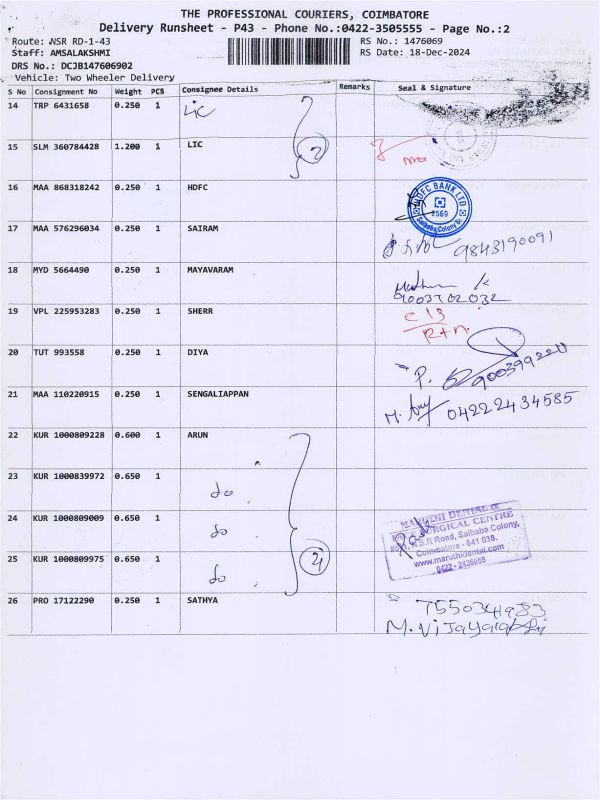 THE PROFESSIONAL COURIERS, COIMBATORE
Delivery Runsheet - P43 - Phone No.:0422-3505555 - Page No.:2
Route: NSR RD-1-43 RS No.: 1476069
Staff: AMSALAKSHMI RS Date: 18-Dec-2024
DRS No.: DCJB147606902
Vehicle: Two Wheeler Delivery
S No Consignment No Weight PCS Consignee Details Remarks Seal & Signature
14 TRP 6431658 0.250 1 LIC
15 SLM 360784428 1.200 1 LIC 2
16 MAA 868318242 0.250 1 HDFC
HDFC BANK LTD
2569
Saibaba Colony Br.
17 MAA 576296034 0.250 1 SAIRAM
9843190091
18 MYD 5664490 0.250 1 MAYAVARAM
9003702032
19 VPL 225953283 0.250 1 SHERR
C/S
R+n.
20 TUT 993558 0.250 1 DIYA
P.
21 MAA 110220915 0.250 1 SENGALIAPPAN
04222434585
22 KUR 1000809228 0.600 1 ARUN
23 KUR 1000839972 0.650 1 do
24 KUR 1000809009 0.650 1 do
25 KUR 1000809975 0.650 1 do 4
MARUTHI DENTAL &
SURGICAL CENTRE
N.S.R Road, Saibaba Colony,
Coimbatore - 641 038.
www.maruthidental.com
0422 - 2436055
26 PRO 17122290 0.250 1 SATHYA
7550341983